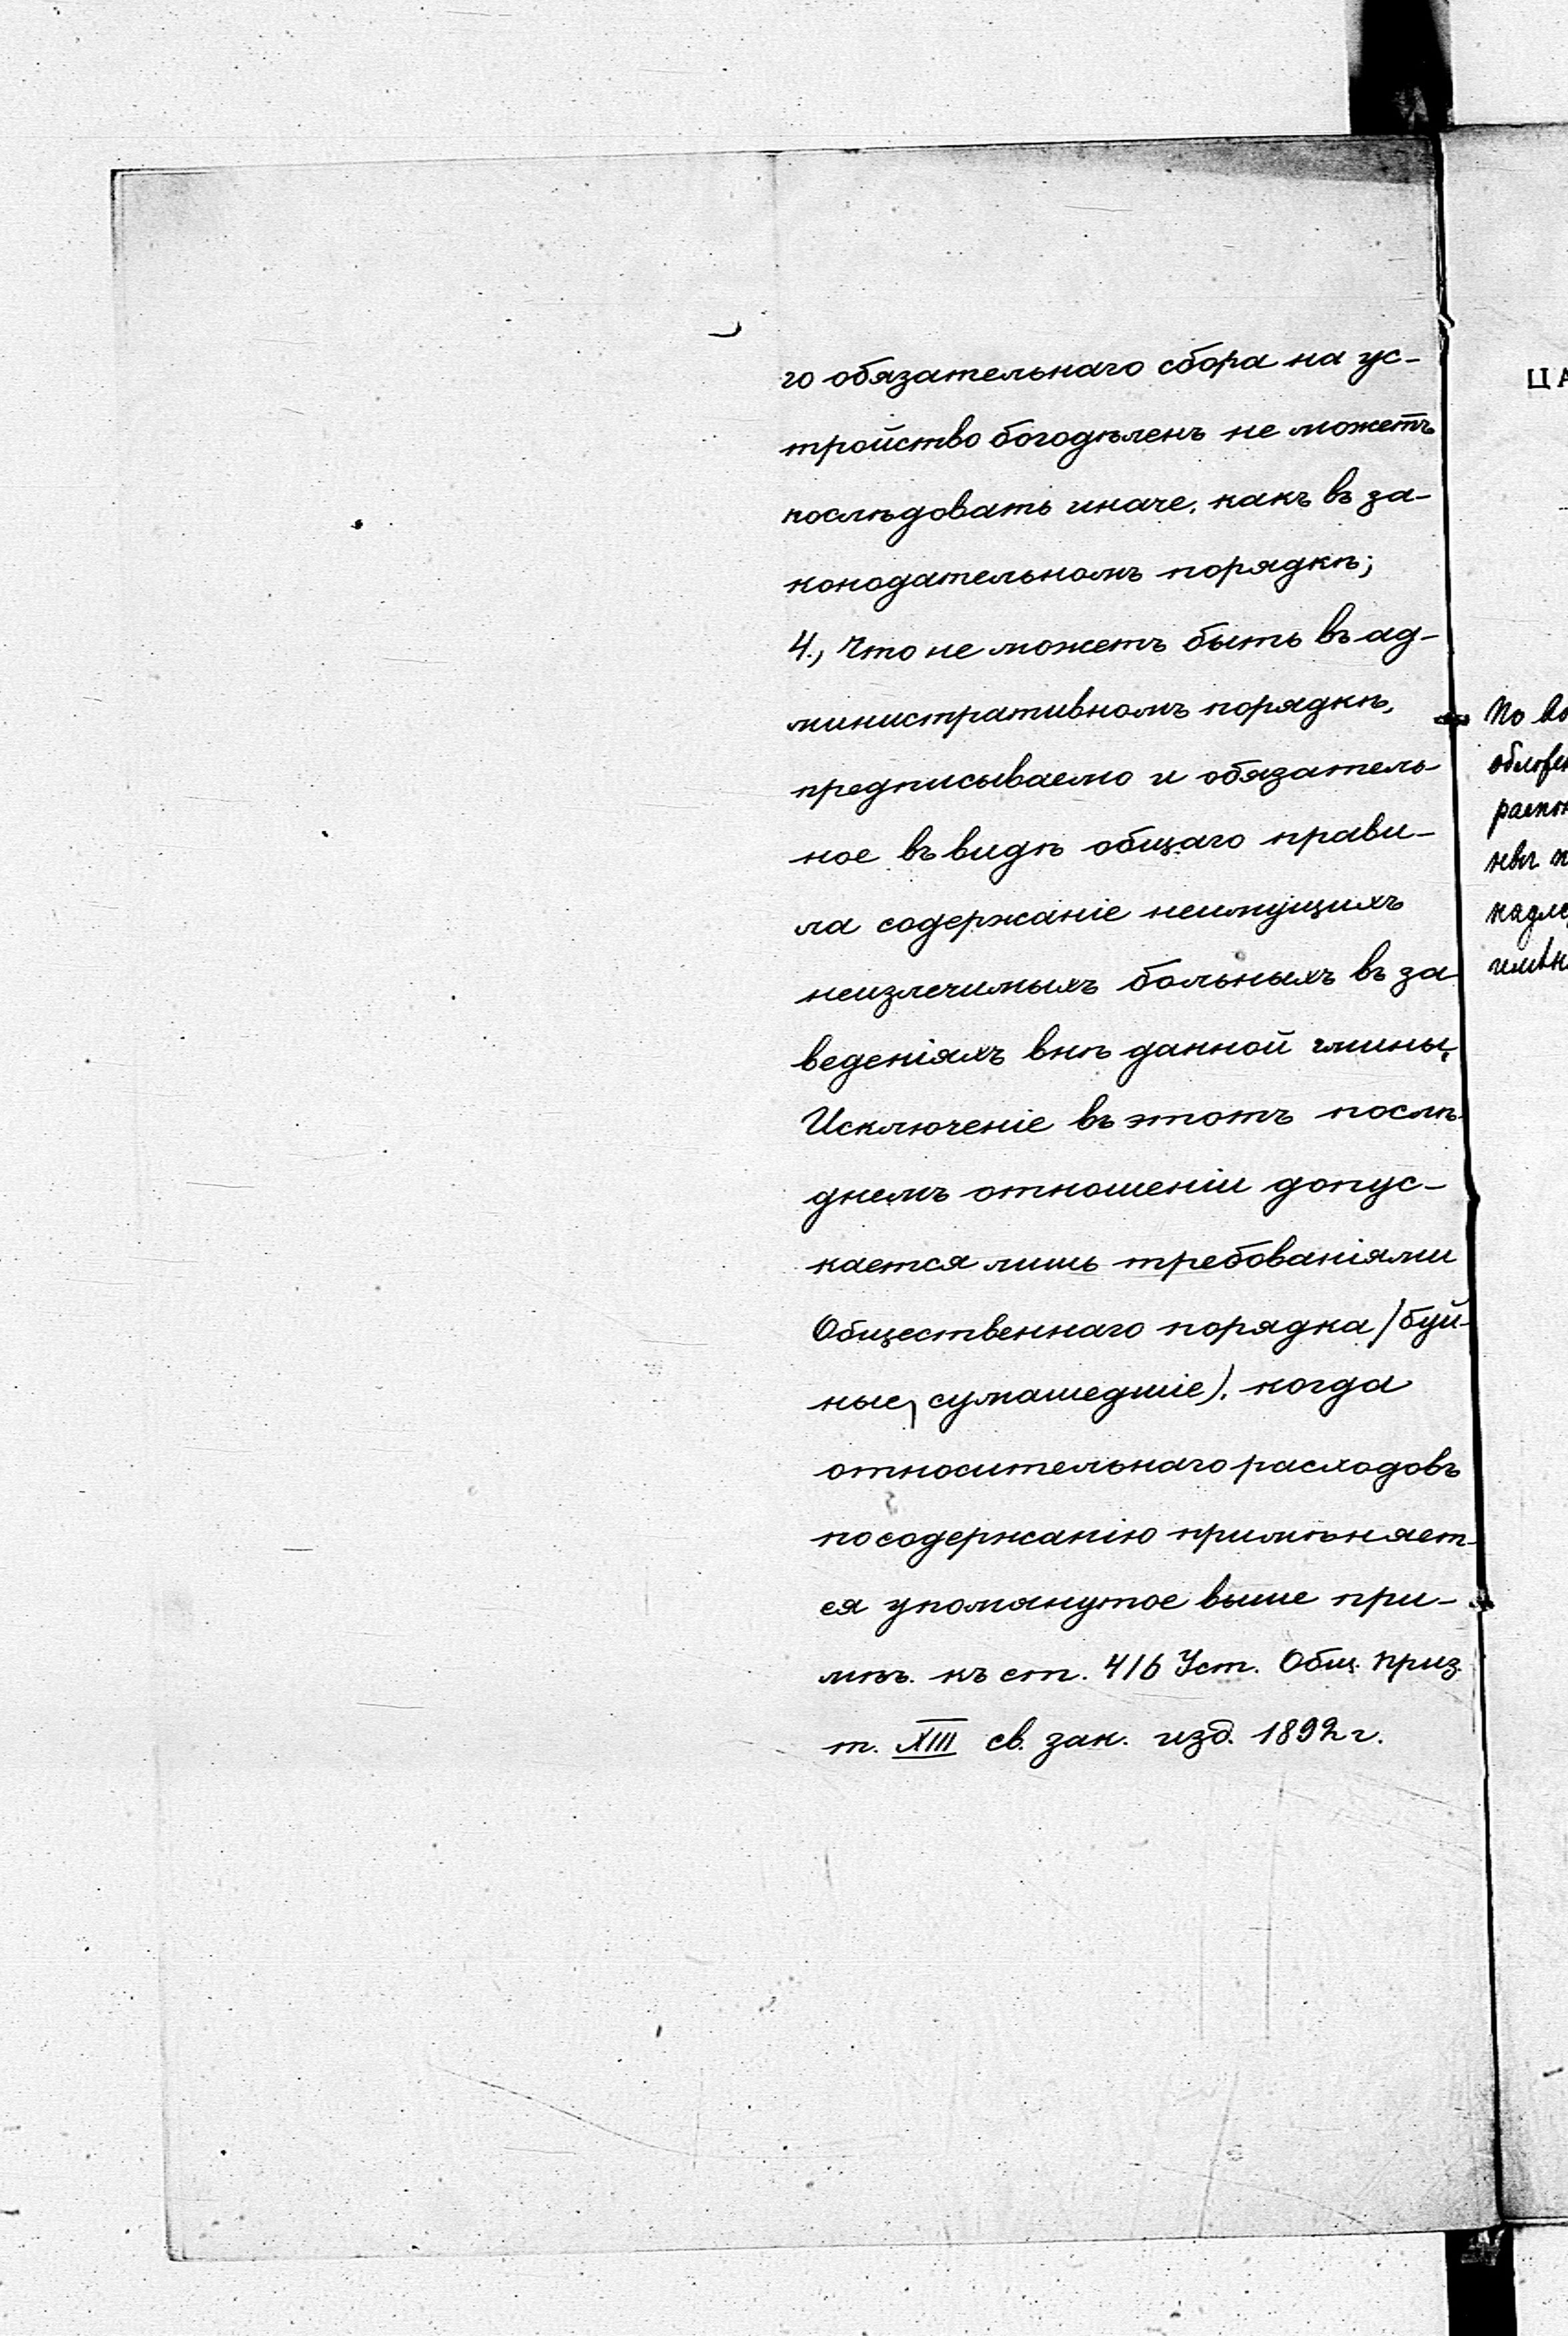 го обязательнаго сбора на ус-
тройство богодѣленъ не можетъ
послѣдовать иначе, какъ въ за-
конодательномъ порядкѣ;
4., Что не можетъ быть въ ад-
министративномъ порядкѣ,
предписываемо и обязатель-
ное въ видѣ общаго прави-
ла содержаніе неимущихъ
неизлечимыхъ больныхъ въ за-
веденіяхъ внѣ данной гмины.
Исключеніе въ этотъ послѣ-
днемъ отношеніи допус-
кается лишь требованіями
Общественнаго порядка /буй-
ные, сумашедшіе), когда
относительнаго расходовъ
по содержанію примѣняет-
ся упомянутое выше при-
мѣч. къ ст. 416 Уст. Общ. Приз.
т. XIII св. зак. изд. 1892 г.
ЦА
По во